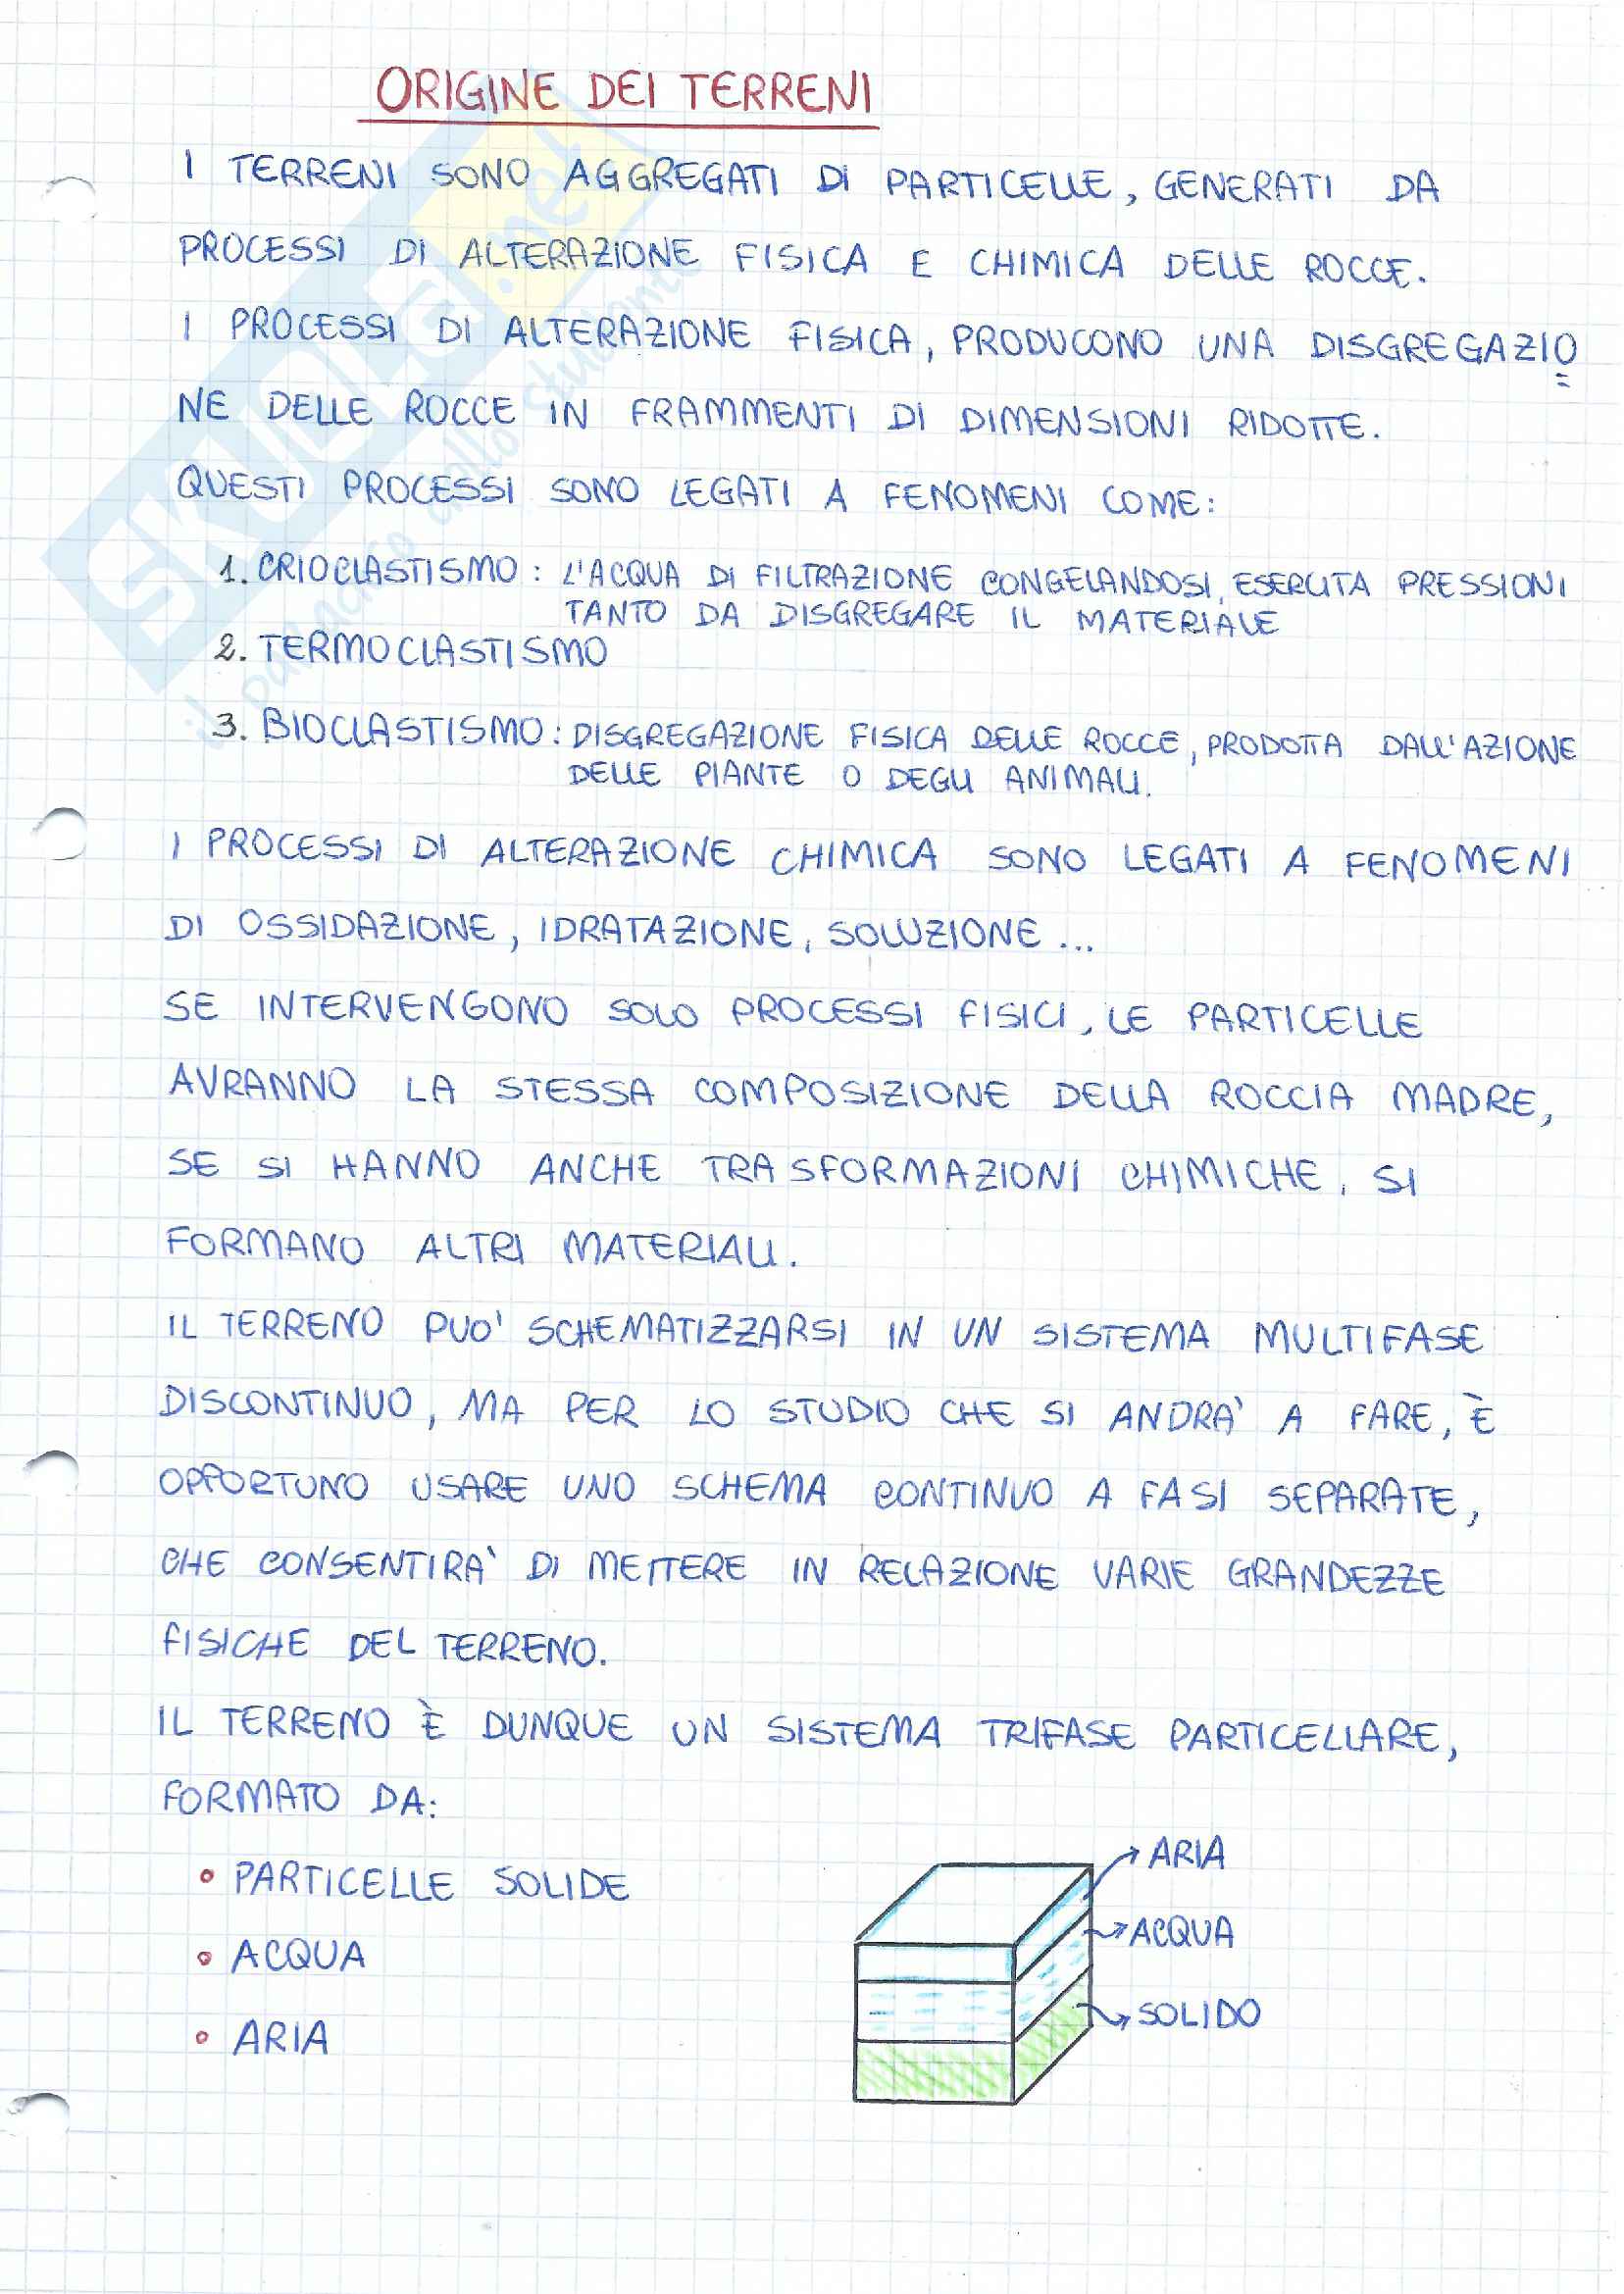 ORIGINE DEI TERRENI
I TERRENI SONO AGGREGATI DI PARTICELLE, GENERATI DA
PROCESSI DI ALTERAZIONE FISICA E CHIMICA DELLE ROCCE.
I PROCESSI DI ALTERAZIONE FISICA, PRODUCONO UNA DISGREGAZIO
NE DELLE ROCCE IN FRAMMENTI DI DIMENSIONI RIDOTTE.
QUESTI PROCESSI SONO LEGATI A FENOMENI COME:
1. CRIOCLASTISMO: L'ACQUA DI FILTRAZIONE CONGELANDOSI, ESERCITA PRESSIONI
TANTO DA DISGREGARE IL MATERIALE
2. TERMOCLASTISMO
3. BIOCLASTISMO: DISGREGAZIONE FISICA DELLE ROCCE, PRODOTTA DALL'AZIONE
DELLE PIANTE O DEGLI ANIMALI.
I PROCESSI DI ALTERAZIONE CHIMICA SONO LEGATI A FENOMENI
DI OSSIDAZIONE, IDRATAZIONE, SOLUZIONE...
SE INTERVENGONO SOLO PROCESSI FISICI, LE PARTICELLE
AVRANNO LA STESSA COMPOSIZIONE DELLA ROCCIA MADRE,
SE SI HANNO ANCHE TRASFORMAZIONI CHIMICHE, SI
FORMANO ALTRI MATERIALI.
IL TERRENO PUO' SCHEMATIZZARSI IN UN SISTEMA MULTIFASE
DISCONTINUO, MA PER LO STUDIO CHE SI ANDRA' A FARE, È
OPPORTUNO USARE UNO SCHEMA CONTINUO A FASI SEPARATE,
CHE CONSENTIRA' DI METTERE IN RELAZIONE VARIE GRANDEZZE
FISICHE DEL TERRENO.
IL TERRENO È DUNQUE UN SISTEMA TRIFASE PARTICELLARE,
FORMATO DA:
• PARTICELLE SOLIDE
• ACQUA
• ARIA
ARIA
ACQUA
SOLIDO
SKUOLA.net
il paradiso dello studente